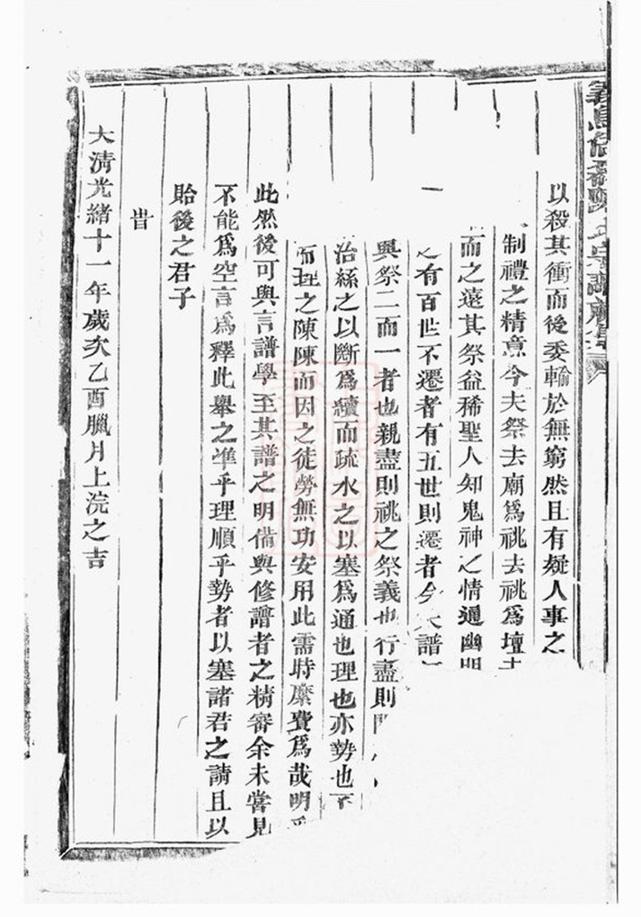 以殺其衝而後委輸於無窮然且有疑人事之
制禮之精意今夫祭去廟為祧去祧為壇去
而之遠其祭益稀聖人知鬼神之情通幽明
一
之有百世不遷者有五世則遷者今夫譜
與祭二而一者也親盡則祧之祭義也行盡則
治絲之以斷為續而疏水之以塞為通也理也亦勢也
而理之陳陳而因之徒勞無功安用此需時縻費為哉明乎
此然後可與言譜學至其譜之明備與修譜者之精審余未嘗見
不能為空言為釋此舉之準乎理順乎勢者以塞諸君之請且以
貽後之君子
旹
大清光緒十一年歲次乙酉臘月上浣之吉